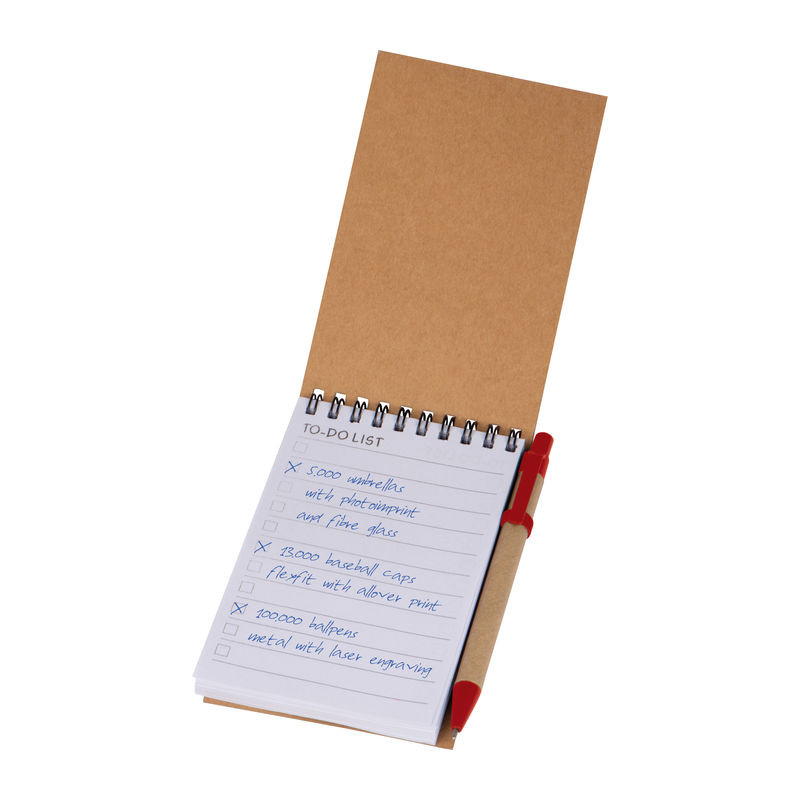 TO-DO LIST
5.000 umbrellas
with photoimprint
and fibre glass
13.000 baseball caps
flexfit with allover print
100.000 ballpens
metal with laser engraving